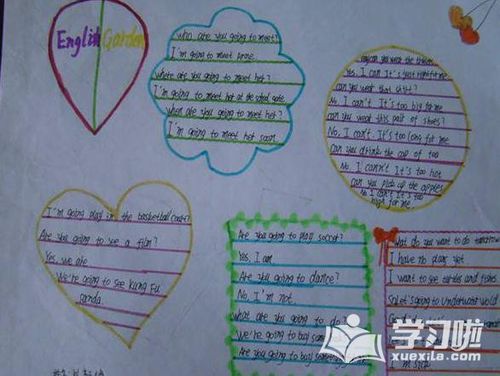 English Garden
who are you going to meet?
I'm going to meet
where are you going to meet her?
I'm going to meet her at the school gate
when are you going to meet her?
I'm going to meet her soon.
can you wear the
Yes, I can It's just right for me
can you wear that shirt?
No, I can't. It's too big for me
can you want this pair of shoes?
No, I can't. It's too long for me
can you drink the cup of tea
No, I can't It's too
can you pick up the apples
No I can't It's too
high for me.
I'm going play in the basketball
Are you going to see a film?
Yes, we are
We're going to see kung fu
panda.
Are you going to play soccer?
Yes, I am
Are you going to dance?
No, I'm not.
what are you going to do?
We're going to buy some
Are you going to buy
What do you want to do
I have no plans yet
I want to see turtles and fishes
going to Underwater World
I'm
学习啦
xuexila.com